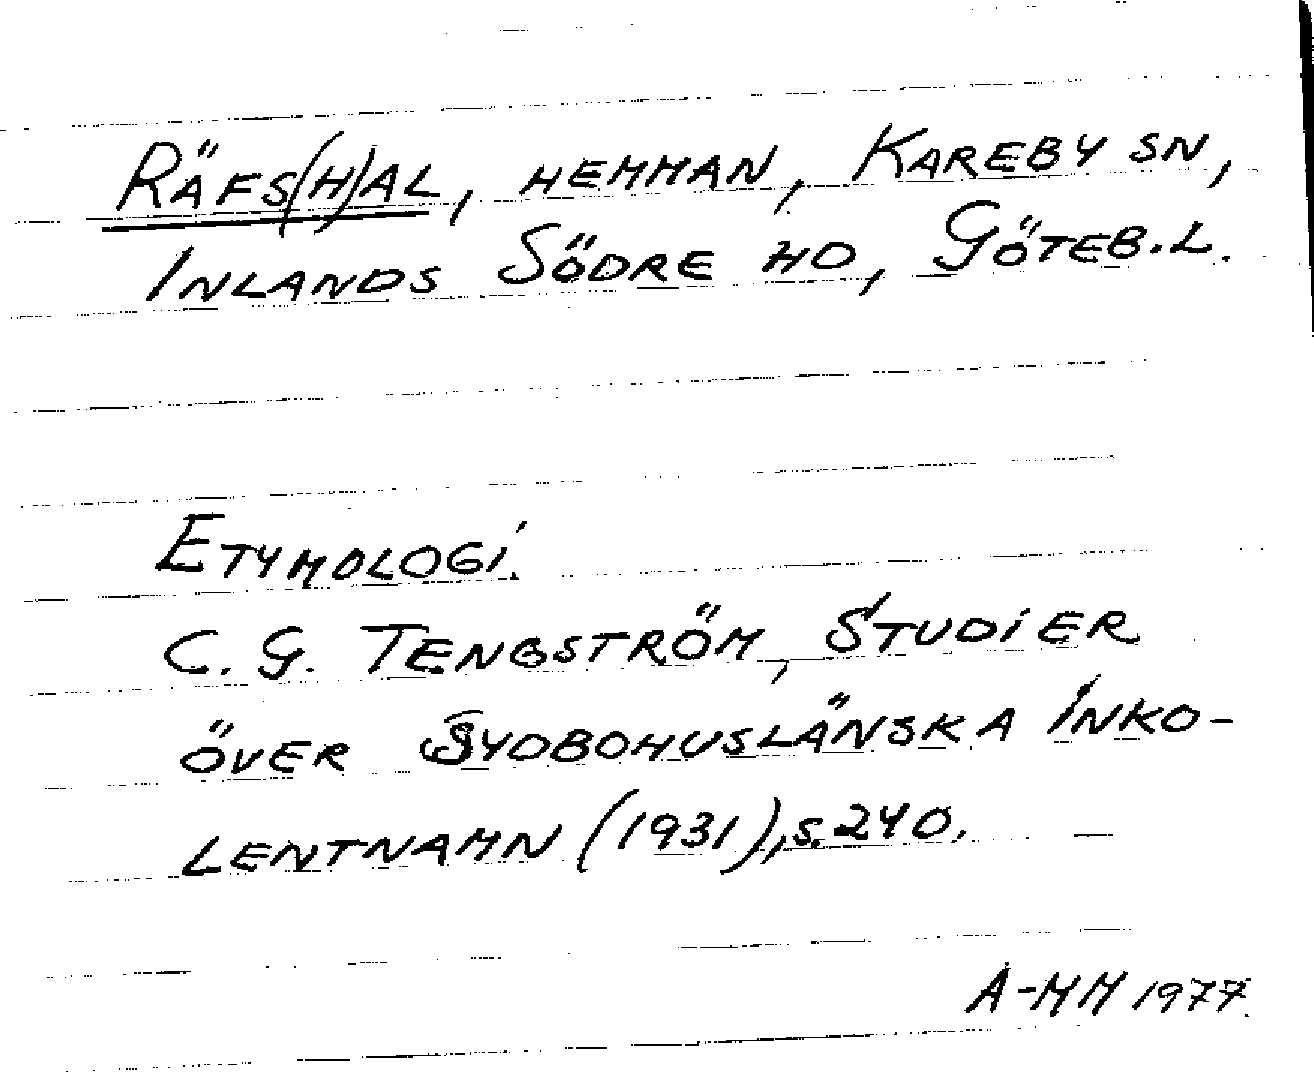 Räfs(h)al, hemman, Kareby sn,
Inlands Södre hd, Göteb.l.
Etymologi.
C. G. Tengström, Studier
över Sydbohuslänska inko-
lentnamn (1931), s. 240.
A-MM 1977.